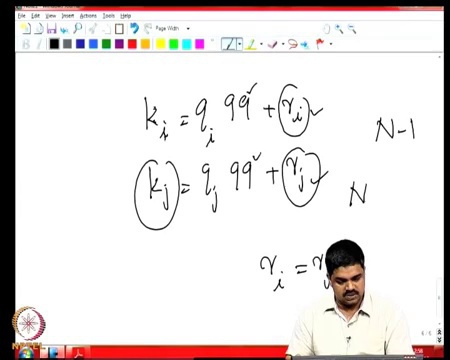 File Edit View Insert Actions Tools Help
Page Width
k_i = q_i 99 + r_i
N-1
k_j = q_j 99 + r_j
N
r_i = r
6/6